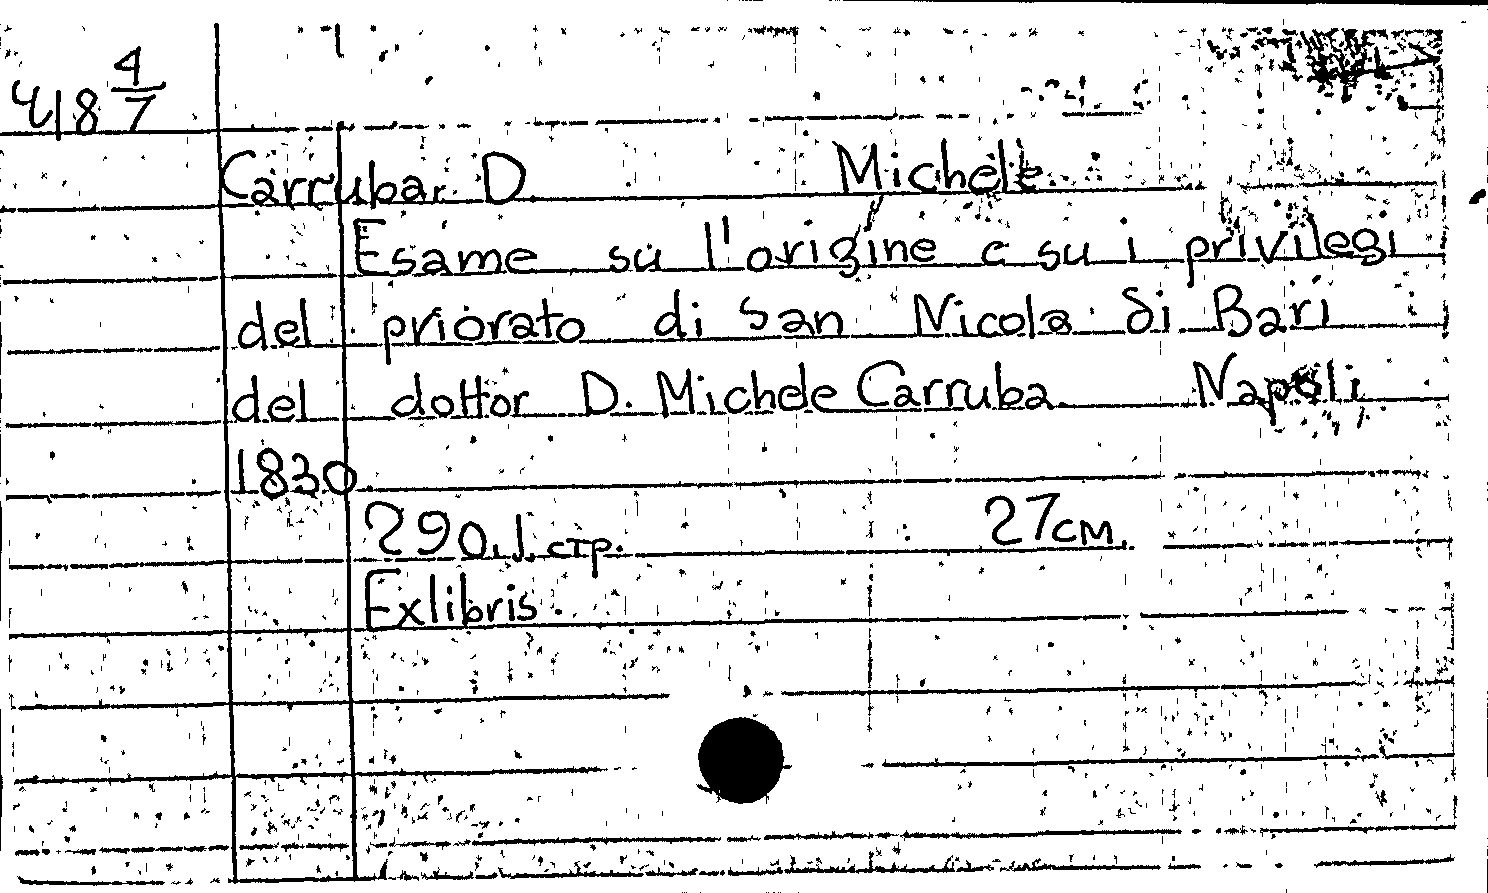 418 4/7
Carruba. D. Michele
Esame su l'origine e su i privilegi
del priorato di San Nicola di Bari
del dottor D. Michele Carruba Napoli
1830
290.I. стр. 27см.
Exlibris.